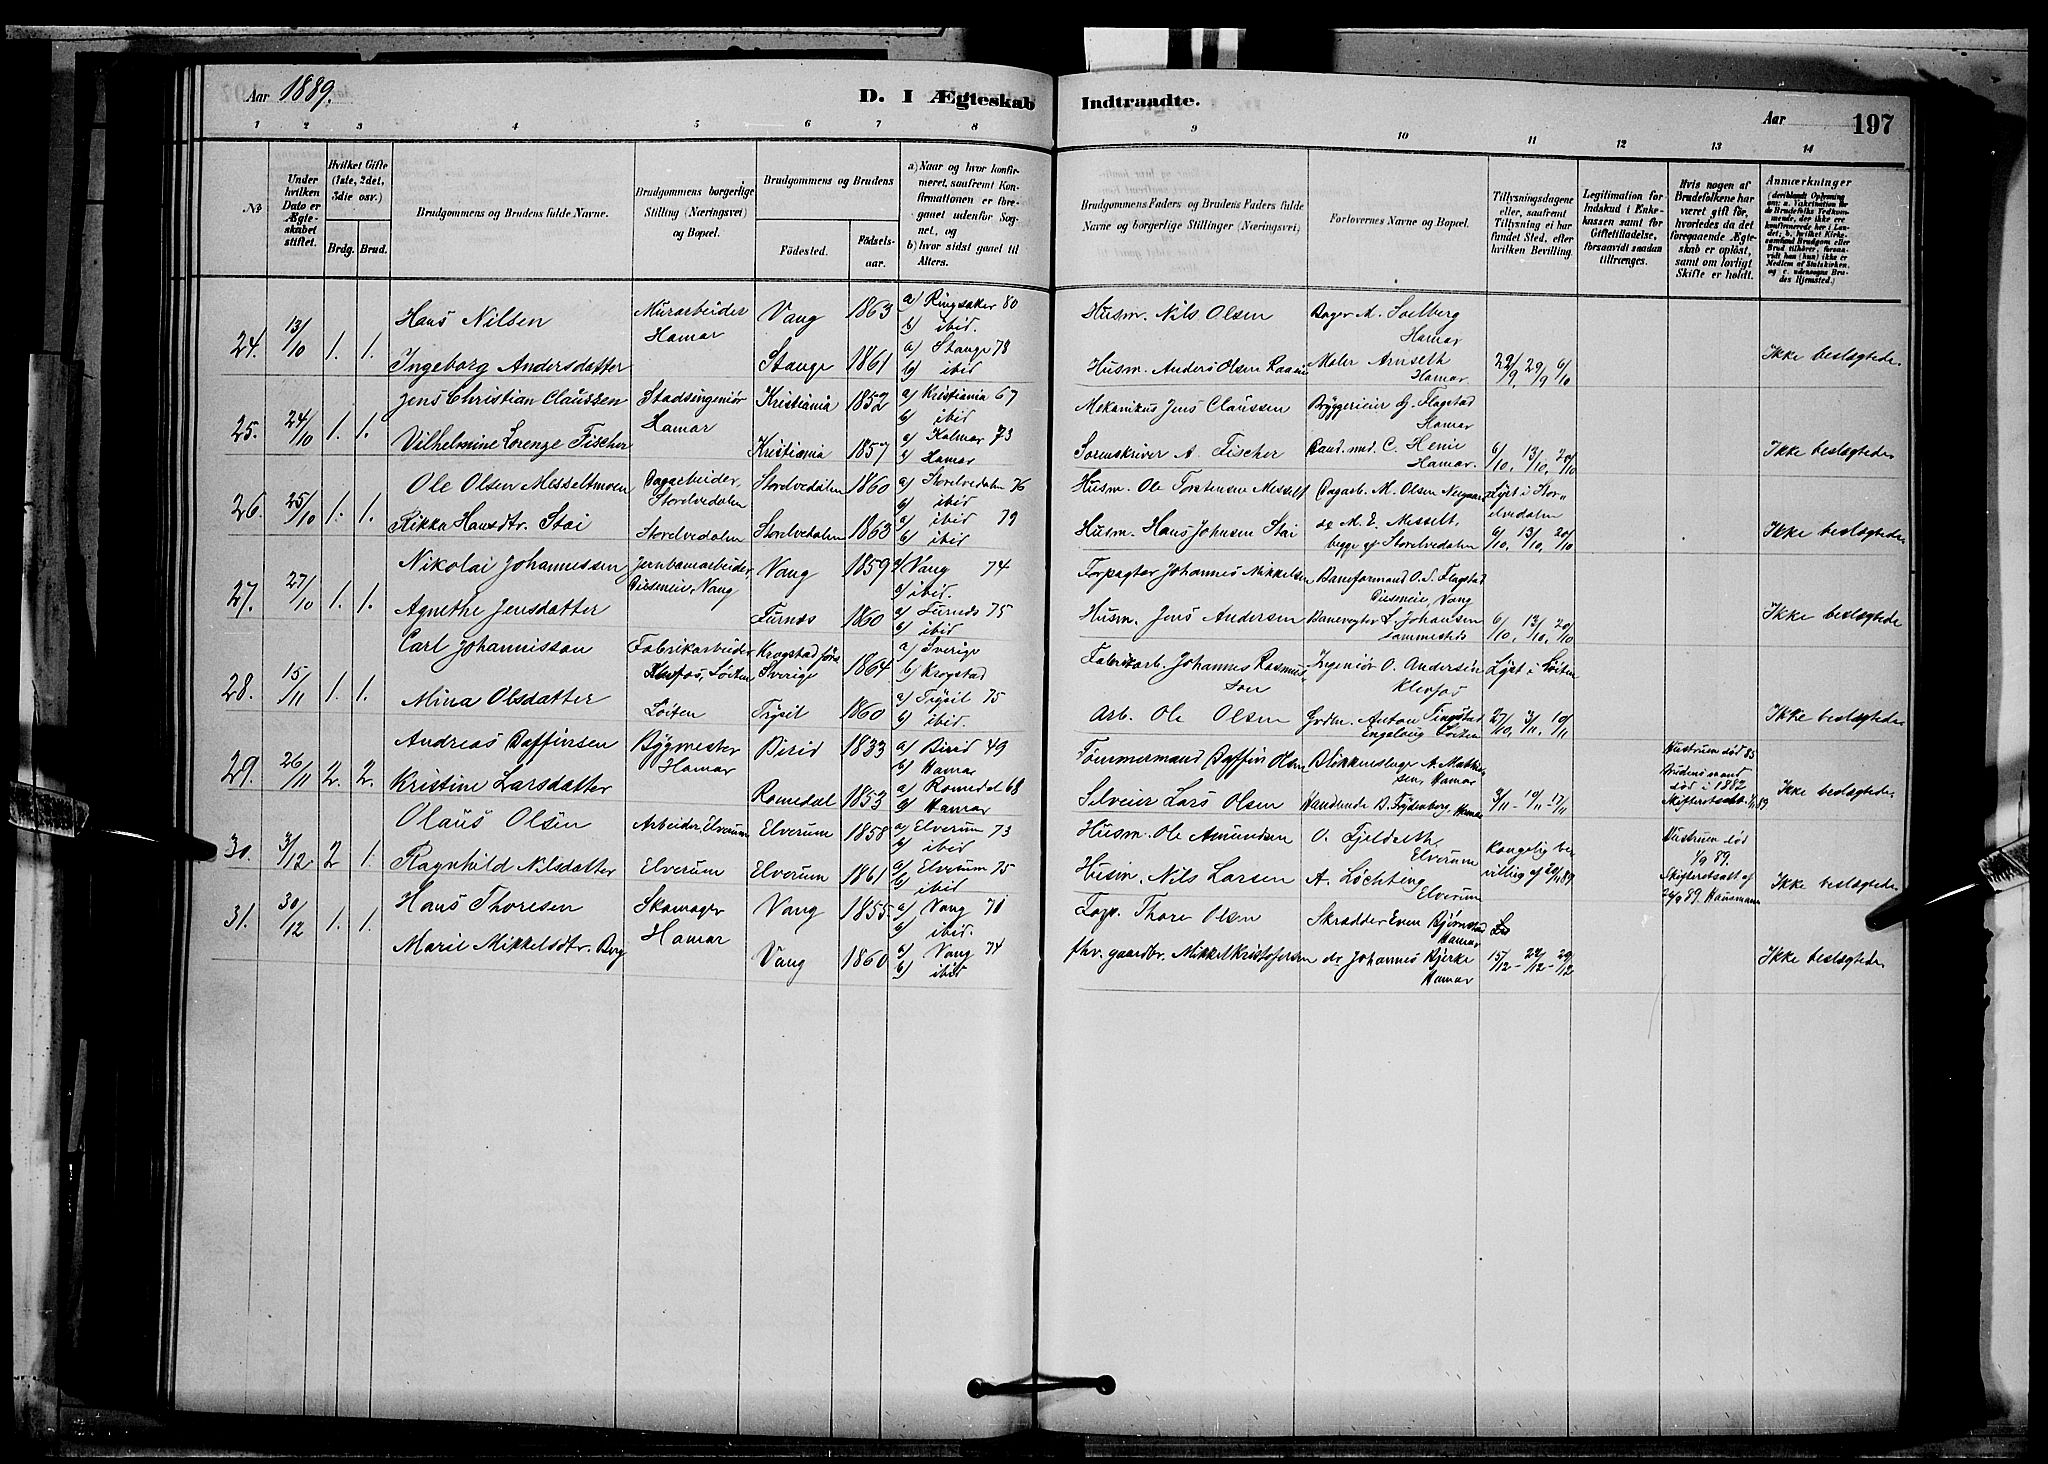 Aar 1889.
D. I Ægteskab Indtraadte.
Aar
197
1 2 3 4 5 6 7 8 9 10 11 12 13 14
№
Under hvilken Dato er Ægteskabet stiftet.
Hvilket Gifte (1ste, 2det, 3die osv.)
Brdg. Brud.
Brudgommens og Brudens fulde Navne.
Brudgommens borgerlige Stilling (Næringsvei) og Bopæl.
Brudgommens og Brudens
Födested.
Födsels-aar.
a) Naar og hvor konfirmeret, saafremt Konfirmationen er foregaaet udenfor Sognet, og
b) hvor sidst gaaet til Alters.
Brudgommens Faders og Brudens Faders fulde Navne og borgerlige Stillinger (Næringsvei)
Forlovernes Navne og Bopæl.
Tillysningsdagene eller, saafremt Tillysning ei har fundet Sted, efter hvilken Bevilling.
Legitimation for Indskud i Enkekassen samt for Giftetilladelse, forsaavidt saadan tiltrænges.
Hvis nogen af Brudefolkene har været gift för, hvorledes da det foregaaende Ægteskab er oplöst, samt om lovligt Skifte er holdt.
Anmærkninger
24. 13/10 1. 1. Hans Nilsen Murarbeider Hamar Vang 1863 a) Ringsaker 80 b) ibid. Husm. Nils Olsen Bager M. Solberg Hamar
Ingeborg Andersdatter Stange 1861 a) Stange 78 b) ibid Husm. Anders Olsen Maler Arneseth Hamar. 22/9, 29/9 6/10 Ikke beslægtede
25. 24/10 1. 1. Jens Christian Claussen Stadsingeniör Hamar Kristiania 1852 a) Kristiania 67 b) ibid Mekanikus Jens Claussen Bryggerieier Flagstad Hamar
Vilhelmine Lorenze Fischer Kristiania 1857 a) Kalmar 73 b) Hamar Sorenskriver A. Fischer Cand. med. C. Henie Hamar. 6/10, 13/10, 20/10 Ikke beslægtede
26. 25/10 1. 1. Ole Olsen Messeltmoen Dagarbeider, Storelvedalen Storelvedalen 1860 a) Storelvedalen 76 b) ibid Husm. Ole Torstensen Messelt Dagarb. M. Olsen Neegaard Lyst i Storelvedalen
Rikka Hansdtr. Stai Storelvedalen Storelvedalen 1863 a) ibid 79 b) ibid Husm. Hans Johnsen Stai og M. E. Messelt, begge af Storelvedalen 6/10, 13/10, 20/10 Ikke beslægtede
27. 27/10 1. 1. Nikolai Johannessen Jernbanearbeider, Disemeie, Vang Vang 1859 a) Vang 74 b) ibid. Forpagter Johannes Mikkelsen Baneformand O. S. Flagstad Disemeie, Vang
Agnethe Jensdatter Furnes 1860 a) Furnes 75 b) ibid Husm. Jens Andersen Banevogter L. Johansen sammesteds 6/10, 13/10, 20/10 Ikke beslægtede
28. 15/11 1. 1. Carl Johannisson Fabrikarbeider Klevfos, Löiten Krogstad Sverige 1864 a) Sverige b) Krogstad Fabrikarb. Johannes Rasmusson Ingeniör O. Andersen Klevfos Lyst i Löiten
Mina Olsdatter Löiten Trysil 1860 a) Trysil 75 b) ibid. Arb. Ole Olsen Grdm. Anton Tingstad Löiten 27/10, 3/11, 10/11 Ikke beslægtede
29. 26/11 2. 2. Andreas Baffinsen Bygmester Hamar Birid 1833 a) Birid 49 b) Hamar Tömmermand Baffin Olsen Blikkenslager A. Mathisen, Hamar Hustruen död 85
Kristine Larsdatter Romedal 1853 a) Romedal 68 b) Hamar Selveier Lars Olsen Handlende B. Frydenberg, Hamar 3/11 - 10/11 - 17/11 Brudens mand död i 1882 Ikke beslægtede
30. 3/12 2 1. Olaus Olsen Arbeider, Elverum Elverum 1858 a) Elverum 73 b) ibid Husm. Ole Amundsen O. Fjeldseth, Elverum Kongelig bevilling af 20/11 89 Hustruen död 1/9 89.
Ragnhild Nilsdatter Elverum Elverum 1861 a) Elverum 75 b) ibid Husm. Nils Larsen A. Löchting Elverum Skifteretsatt af 24/9 89. Hansmann Ikke beslægtede
31. 30/12 1. 1. Hans Thoresen Skomager Hamar Vang 1855 a) Vang 70 b) ibid. Forp. Thore Olsen Skrædder Even Bjørnstad Hamar
Marie Mikkelsdtr. Berg Vang 1860 a) Vang 74 b) ibid fhv. gaardbr. Mikkel Kristofersen do Johannes Bjerke Hamar 15/12 - 22/12 - 29/12 Ikke beslægtede